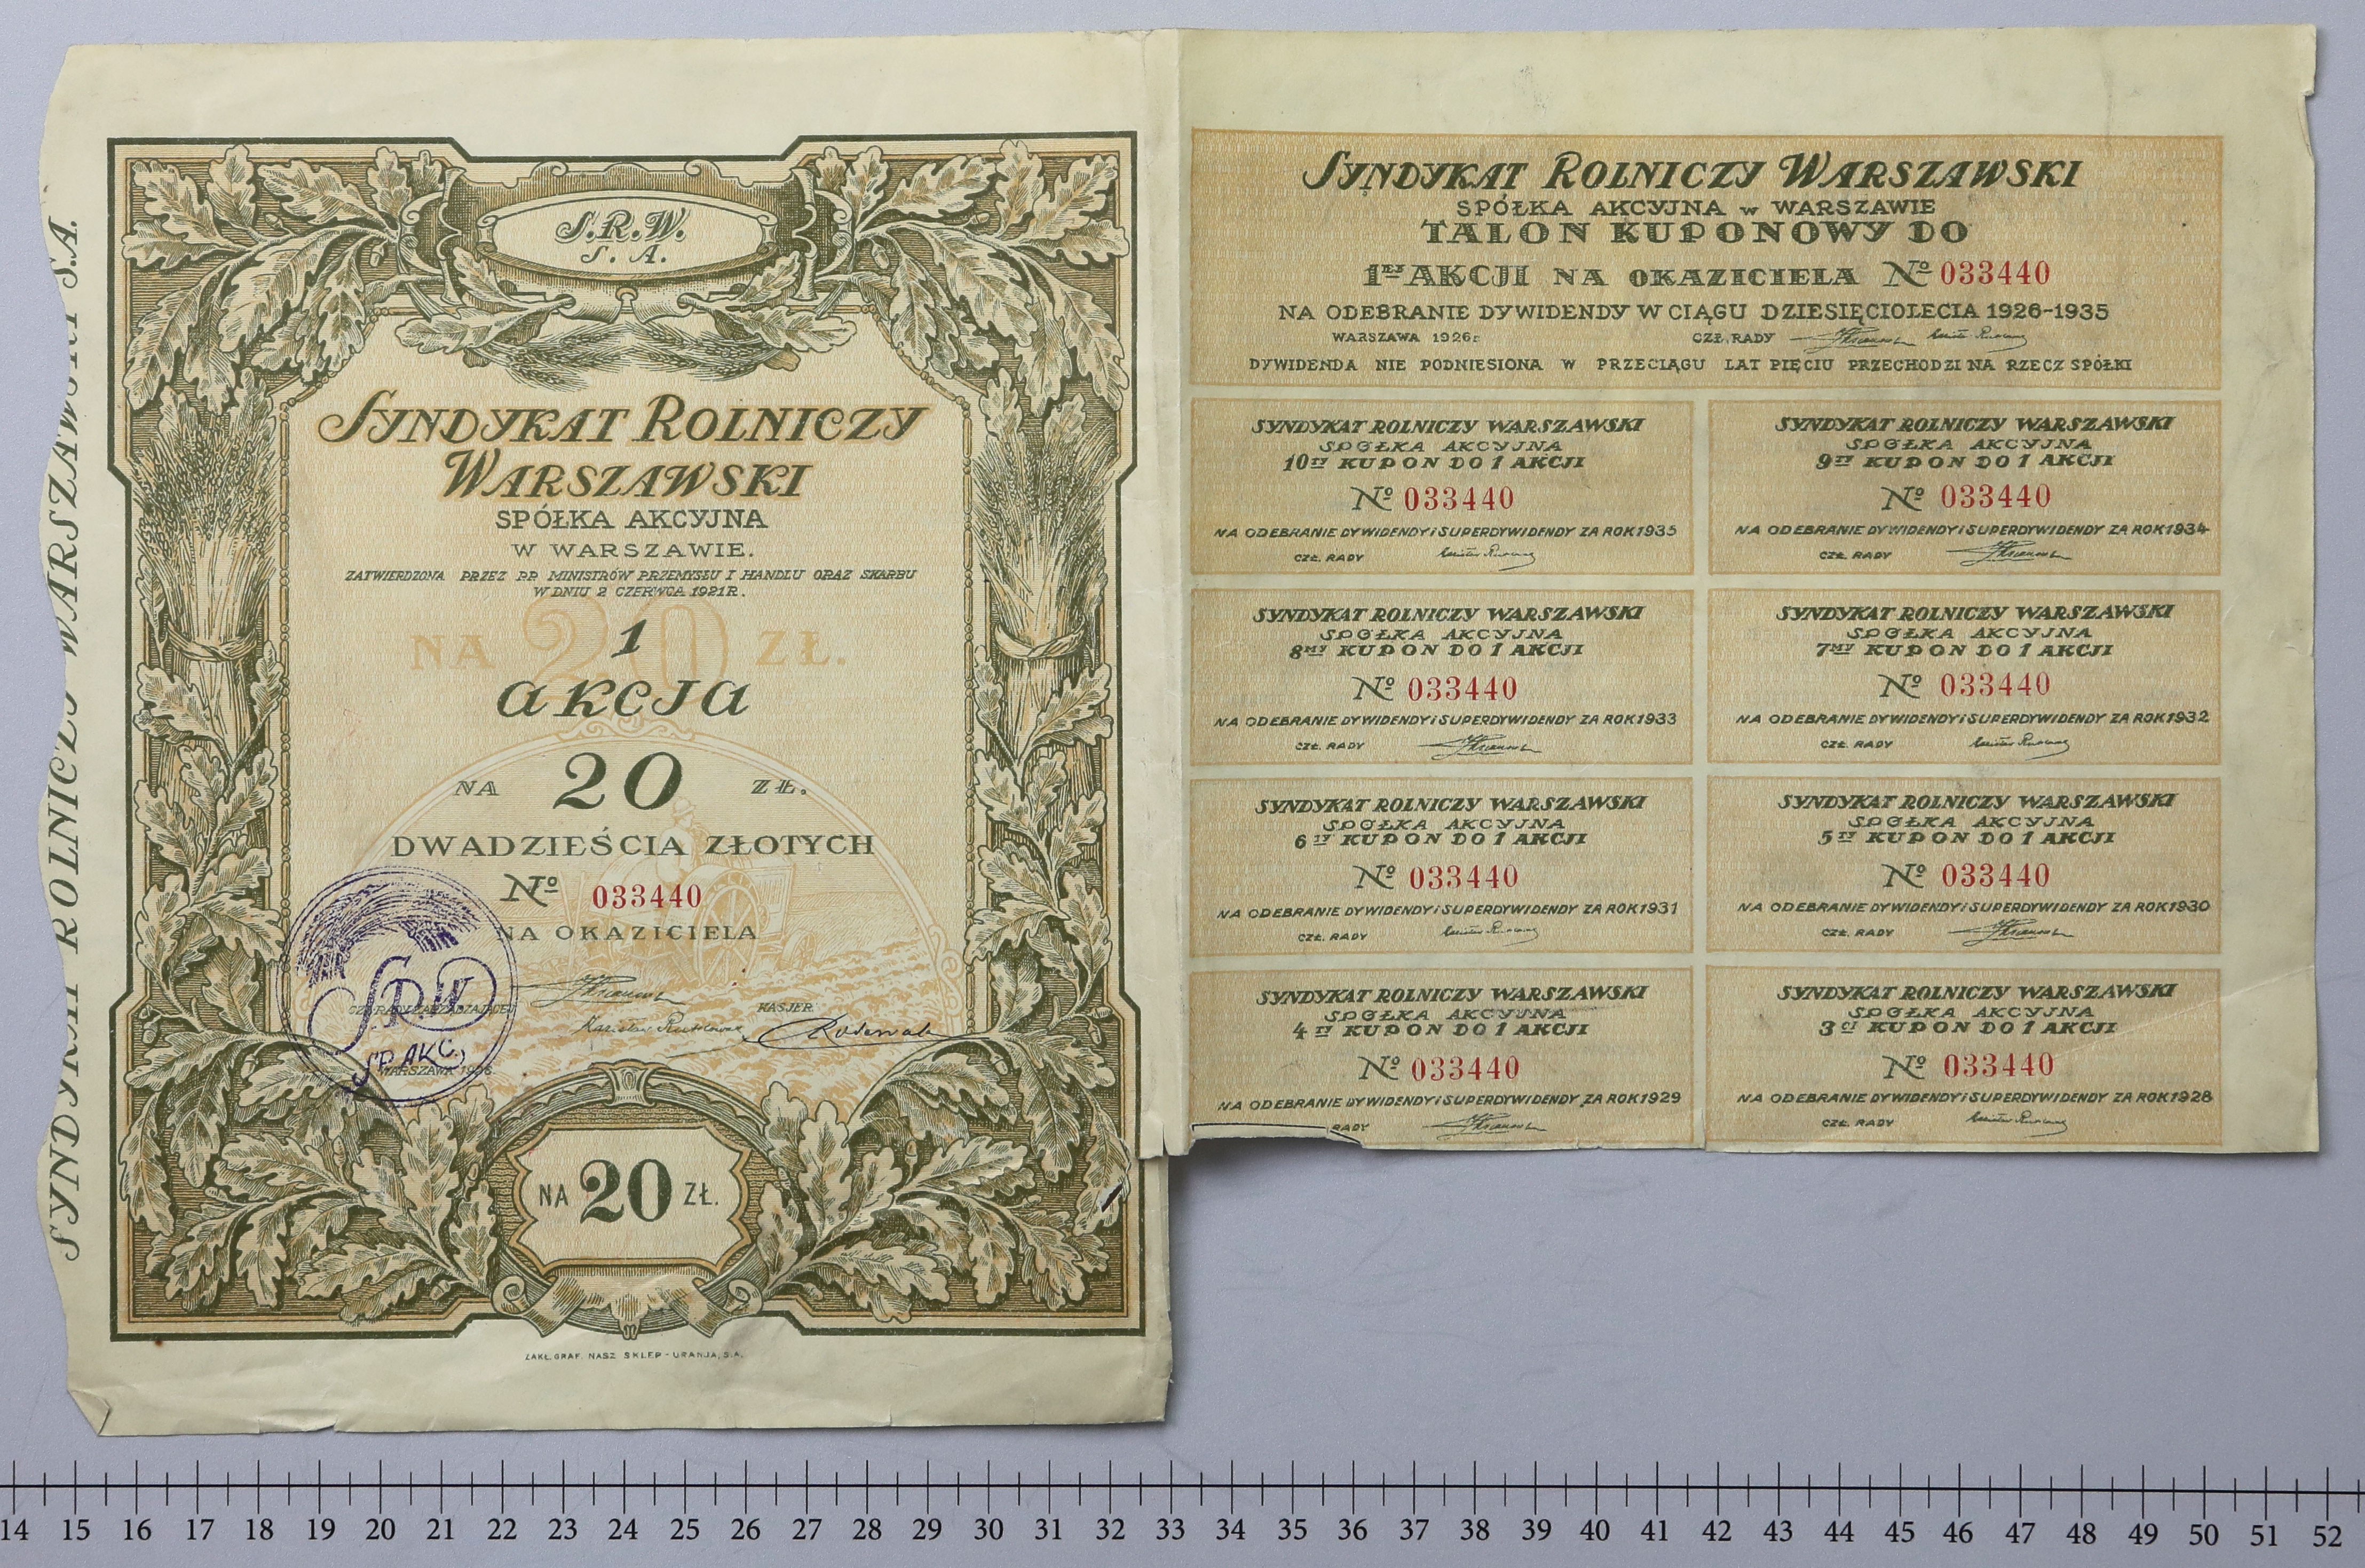 SYNDYKAT ROLNICZY WARSZAWSKI S.A.
S.R.W.
S. A.
SYNDYKAT ROLNICZY
WARSZAWSKI
SPÓŁKA AKCYJNA
W WARSZAWIE.
ZATWIERDZONA PRZEZ PP. MINISTRÓW PRZEMYSŁU I HANDLU ORAZ SKARBU
W DNIU 2 CZERWCA 1921 R.
NA 20 ZŁ.
1
AKCJA
NA 20 ZŁ.
DWADZIEŚCIA ZŁOTYCH
Nº 033440
NA OKAZICIELA
CZŁ. RADY ZARZĄDZAJĄCEJ
KASJER
S.R.W.
SP. AKC.
WARSZAWA 1926
NA 20 ZŁ.
ZAKŁ. GRAF. NASZ SKLEP - URANJA, S.A.
SYNDYKAT ROLNICZY WARSZAWSKI
SPÓŁKA AKCYJNA W WARSZAWIE
TALON KUPONOWY DO
1EJ AKCJI NA OKAZICIELA Nº 033440
NA ODEBRANIE DYWIDENDY W CIĄGU DZIESIĘCIOLECIA 1926-1935
WARSZAWA 1926 r. CZŁ. RADY
DYWIDENDA NIE PODNIESIONA W PRZECIĄGU LAT PIĘCIU PRZECHODZI NA RZECZ SPÓŁKI
SYNDYKAT ROLNICZY WARSZAWSKI
SPÓŁKA AKCYJNA
10TY KUPON DO 1 AKCJI
Nº 033440
NA ODEBRANIE DYWIDENDY i SUPERDYWIDENDY ZA ROK 1935
CZŁ. RADY
SYNDYKAT ROLNICZY WARSZAWSKI
SPÓŁKA AKCYJNA
9TY KUPON DO 1 AKCJI
Nº 033440
NA ODEBRANIE DYWIDENDY i SUPERDYWIDENDY ZA ROK 1934
CZŁ. RADY
SYNDYKAT ROLNICZY WARSZAWSKI
SPÓŁKA AKCYJNA
8MY KUPON DO 1 AKCJI
Nº 033440
NA ODEBRANIE DYWIDENDY i SUPERDYWIDENDY ZA ROK 1933
CZŁ. RADY
SYNDYKAT ROLNICZY WARSZAWSKI
SPÓŁKA AKCYJNA
7MY KUPON DO 1 AKCJI
Nº 033440
NA ODEBRANIE DYWIDENDY i SUPERDYWIDENDY ZA ROK 1932
CZŁ. RADY
SYNDYKAT ROLNICZY WARSZAWSKI
SPÓŁKA AKCYJNA
6TY KUPON DO 1 AKCJI
Nº 033440
NA ODEBRANIE DYWIDENDY i SUPERDYWIDENDY ZA ROK 1931
CZŁ. RADY
SYNDYKAT ROLNICZY WARSZAWSKI
SPÓŁKA AKCYJNA
5TY KUPON DO 1 AKCJI
Nº 033440
NA ODEBRANIE DYWIDENDY i SUPERDYWIDENDY ZA ROK 1930
CZŁ. RADY
SYNDYKAT ROLNICZY WARSZAWSKI
SPÓŁKA AKCYJNA
4TY KUPON DO 1 AKCJI
Nº 033440
NA ODEBRANIE DYWIDENDY i SUPERDYWIDENDY ZA ROK 1929
RADY
SYNDYKAT ROLNICZY WARSZAWSKI
SPÓŁKA AKCYJNA
3CI KUPON DO 1 AKCJI
Nº 033440
NA ODEBRANIE DYWIDENDY i SUPERDYWIDENDY ZA ROK 1928
CZŁ. RADY
14 15 16 17 18 19 20 21 22 23 24 25 26 27 28 29 30 31 32 33 34 35 36 37 38 39 40 41 42 43 44 45 46 47 48 49 50 51 52